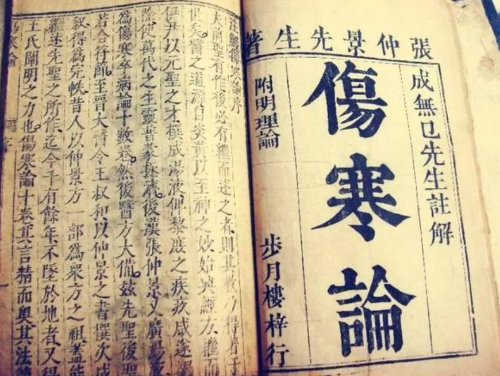 張仲景先生著
成無已先生註解
傷寒論
附明理論
步月樓梓行
註解傷寒論序
夫前聖有作後必有繼而述之者則其教乃得著于
世矣醫之道源自炎黃以至神之妙始興經方繼而
伊尹以元聖之才撰成湯液俾黎庶之疾疢咸遂蠲
除使萬代之生靈普蒙拯濟後漢張仲景又廣湯液
為傷寒卒病論十數卷然後醫方大備茲先聖後聖
若合符節至晉太醫令王叔和以仲景之書撰次成
敘得為完帙昔人以仲景方一部為眾方之祖蓋能
繼述先聖之所作迄今千有餘年不墜於地者又得
王氏闡明之力也傷寒論十卷其言精而奧其法簡